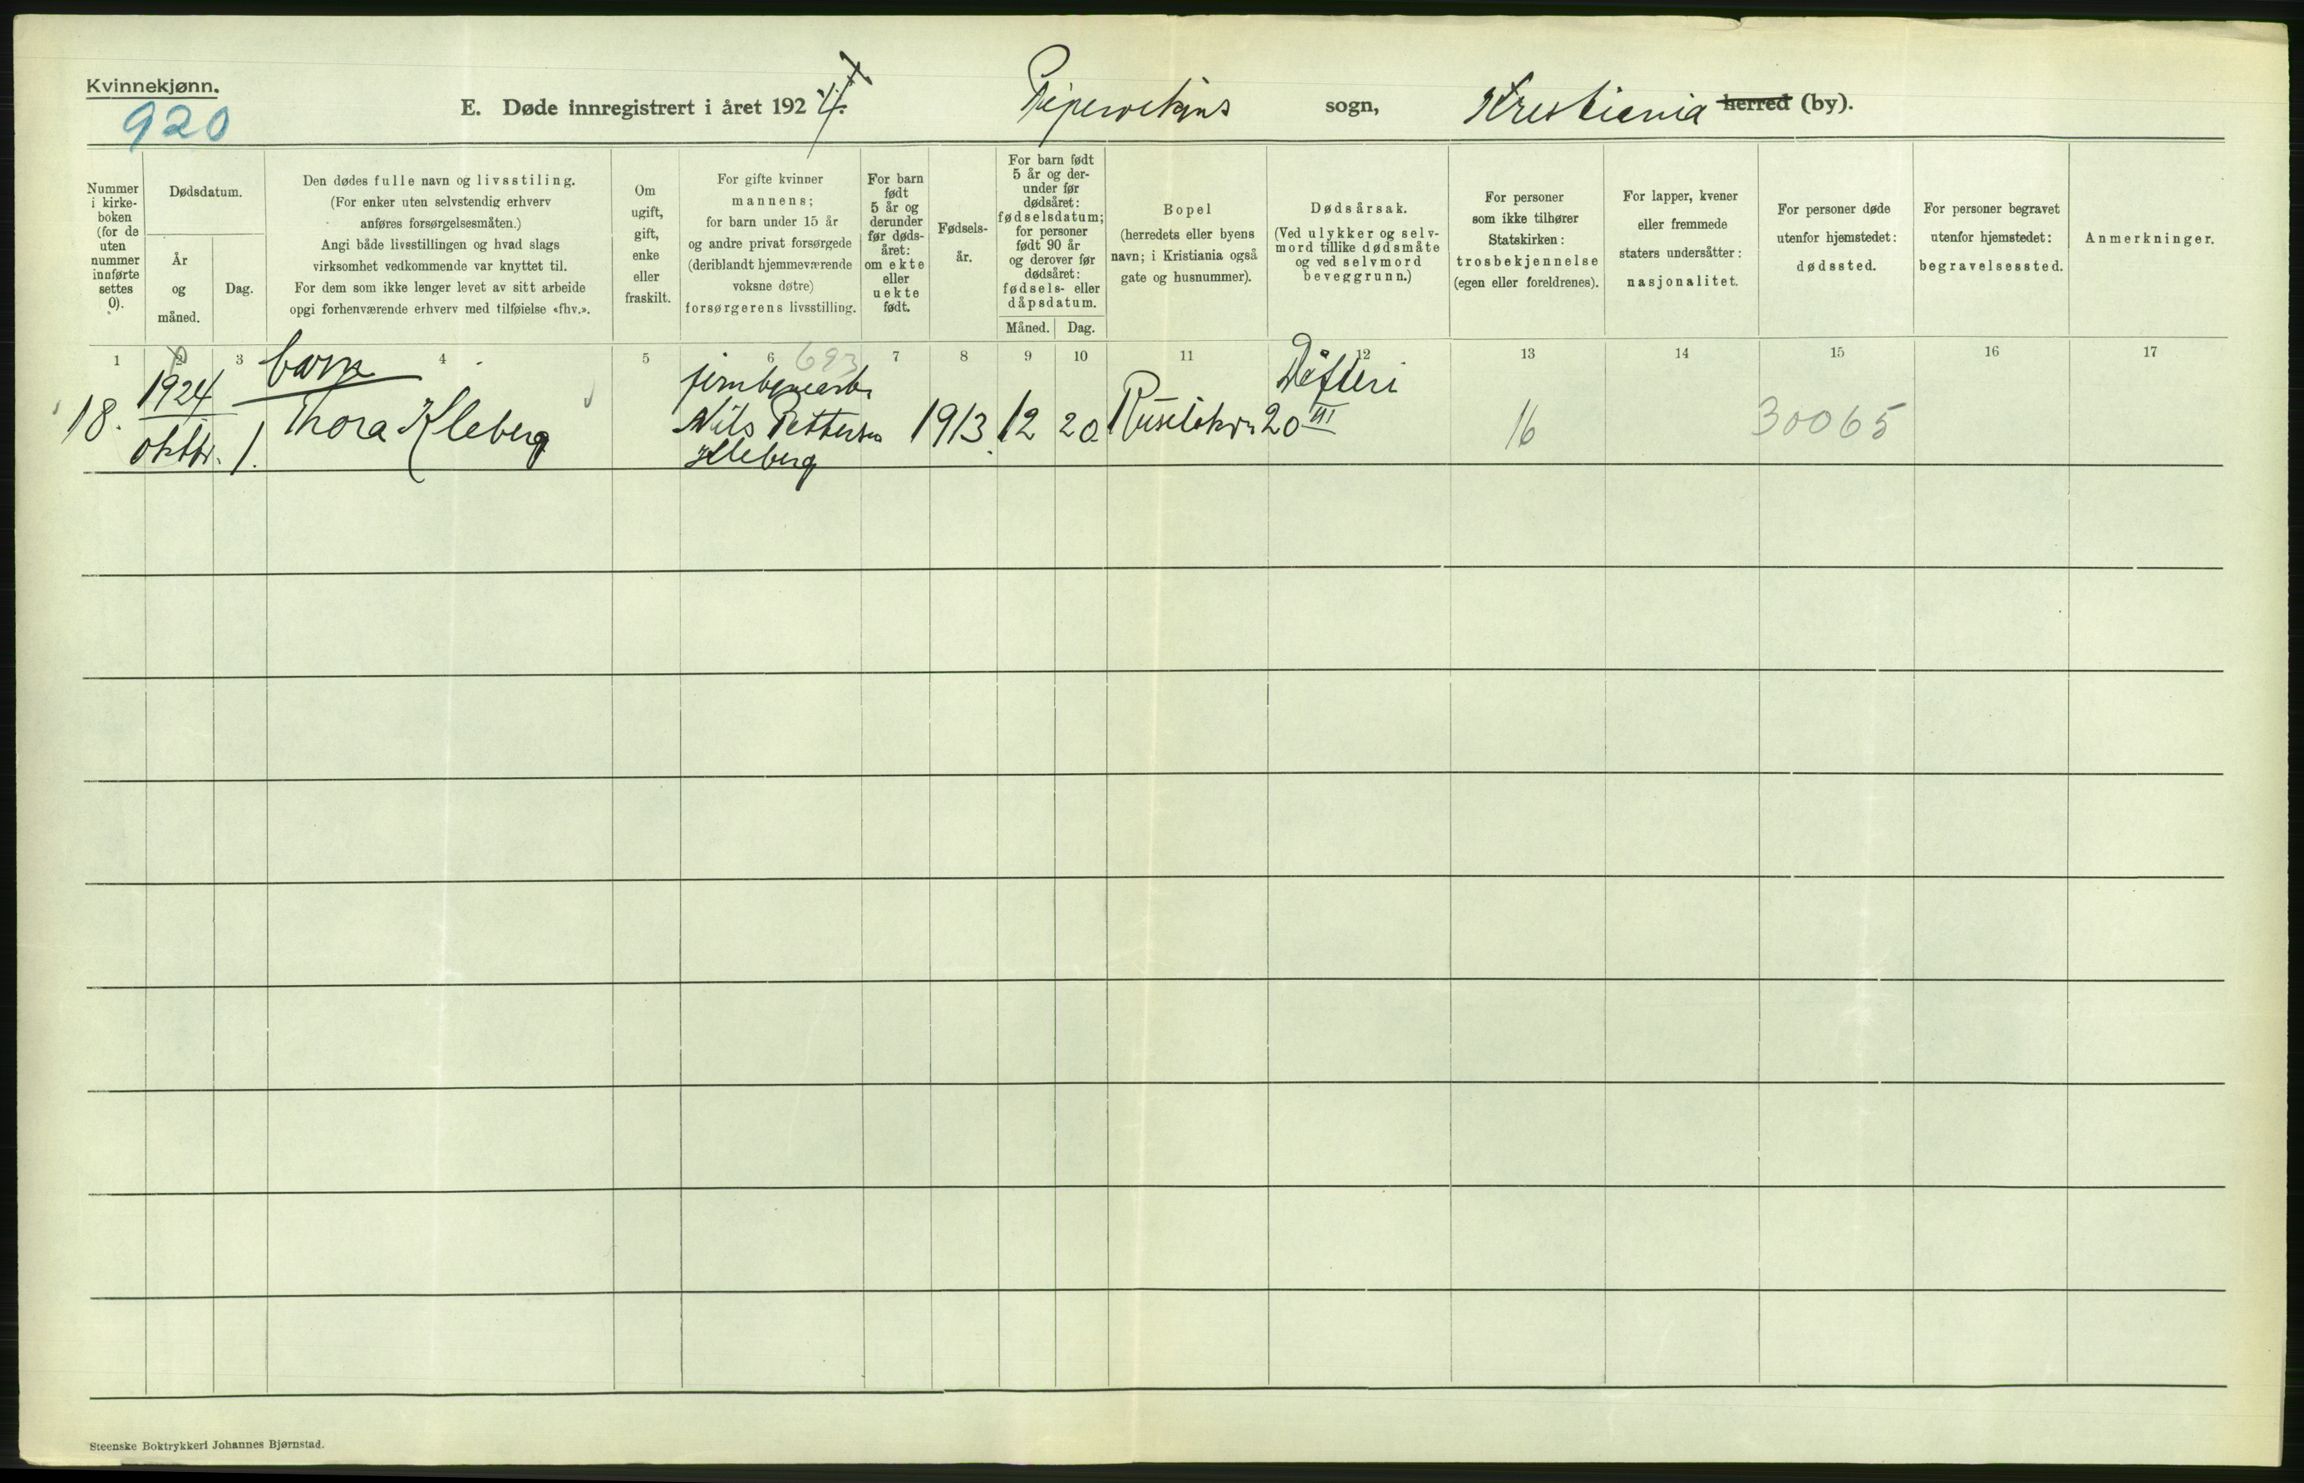 Kvinnekjønn.
920
E. Døde innregistrert i året 1924. Pipervikens sogn, Kristiania herred (by).
Nummer i kirke-boken (for de uten nummer innførte settes 0).
Dødsdatum.
År og måned.
Dag.
Den dødes fulle navn og livsstilling.
(For enker uten selvstendig erhverv
anføres forsørgelsesmåten.)
Angi både livsstillingen og hvad slags
virksomhet vedkommende var knyttet til.
For dem som ikke lenger levet av sitt arbeide
opgi forhenværende erhverv med tilføielse «fhv.».
Om ugift, gift, enke eller fraskilt.
For gifte kvinner
mannens;
for barn under 15 år
og andre privat forsørgede
(deriblandt hjemmeværende
voksne døtre)
forsørgerens livsstilling.
For barn født 5 år og derunder før døds-året: om ekte eller uekte født.
Fødsels-år.
For barn født
5 år og der-
under før
dødsåret:
fødselsdatum;
for personer
født 90 år
og derover før
dødsåret:
fødsels- eller
dåpsdatum.
Måned. Dag.
Bopel
(herredets eller byens
navn; i Kristiania også
gate og husnummer).
Dødsårsak.
(Ved ulykker og selv-
mord tillike dødsmåte
og ved selvmord
beveggrunn.)
For personer
som ikke tilhører
Statskirken:
trosbekjennelse
(egen eller foreldrenes).
For lapper, kvener
eller fremmede
staters undersåtter:
nasjonalitet.
For personer døde
utenfor hjemstedet:
dødssted.
For personer begravet
utenfor hjemstedet:
begravelsessted.
Anmerkninger.
1 2 3 4 5 6 7 8 9 10 11 12 13 14 15 16 17
693
barn
18. 1924 oktbr. 1. Thora Kleberg
jernbanearb.
Nils Pettersen
Kleberg
1913. 12 20 Ruseløkvn 20 III
Difteri
16
30065
Steenske Boktrykkeri Johannes Bjørnstad.